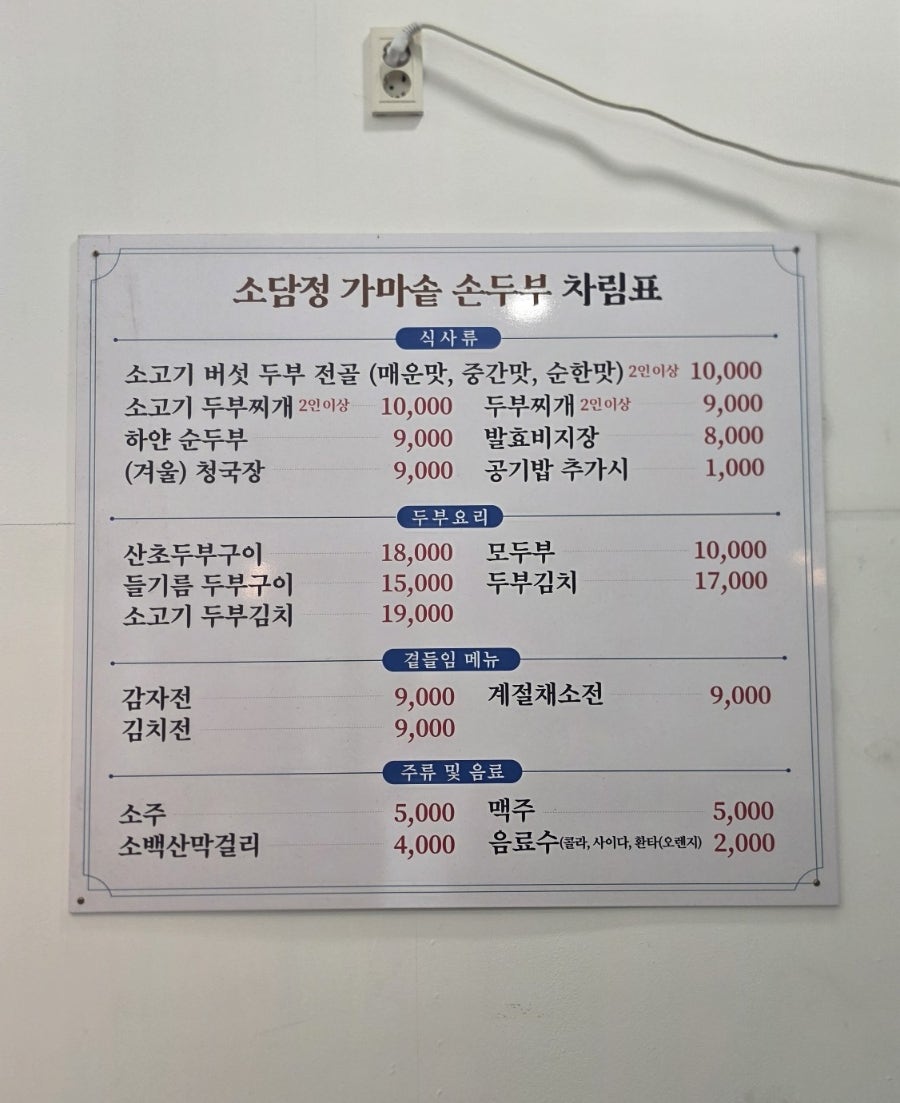 소담정 가마솥 손두부 차림표
식사류
소고기 버섯 두부 전골 (매운맛, 중간맛, 순한맛) 2인이상 10,000
소고기 두부찌개 2인이상 10,000 두부찌개 2인이상 9,000
하얀 순두부 9,000 발효비지장 8,000
(겨울) 청국장 9,000 공기밥 추가시 1,000
두부요리
산초두부구이 18,000 모두부 10,000
들기름 두부구이 15,000 두부김치 17,000
소고기 두부김치 19,000
곁들임 메뉴
감자전 9,000 계절채소전 9,000
김치전 9,000
주류 및 음료
소주 5,000 맥주 5,000
소백산막걸리 4,000 음료수(콜라, 사이다, 환타(오렌지) 2,000